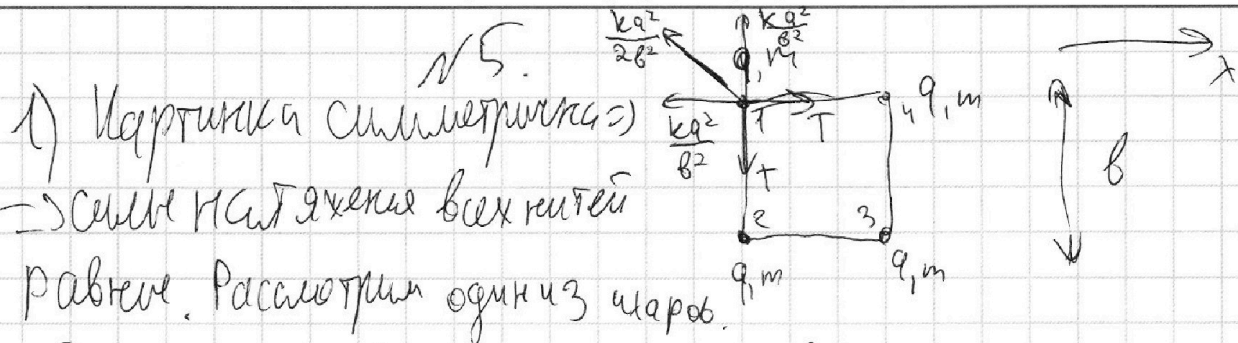 №5.
1) Картинка симметрична =>
=> силы натяжения всех нитей
равны. Рассмотрим один из шаров.
kq²/2b²
kq²/b²
q, m
kq²/b²
1
T
T
4 q, m
x
b
2
3
q, m
q, m